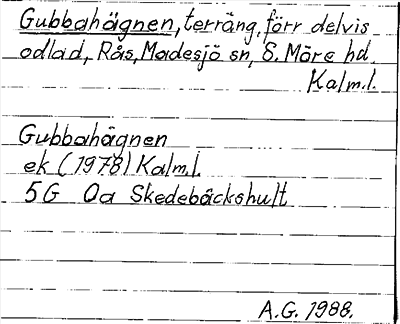 Gubbahägnen, terräng, förr delvis
odlad, Rås, Madesjö sn, S. Möre hd
Kalm.l.
Gubbahägnen
ek (1978) Kalm.l.
5G 0a Skedebäckshult
A.G. 1988.